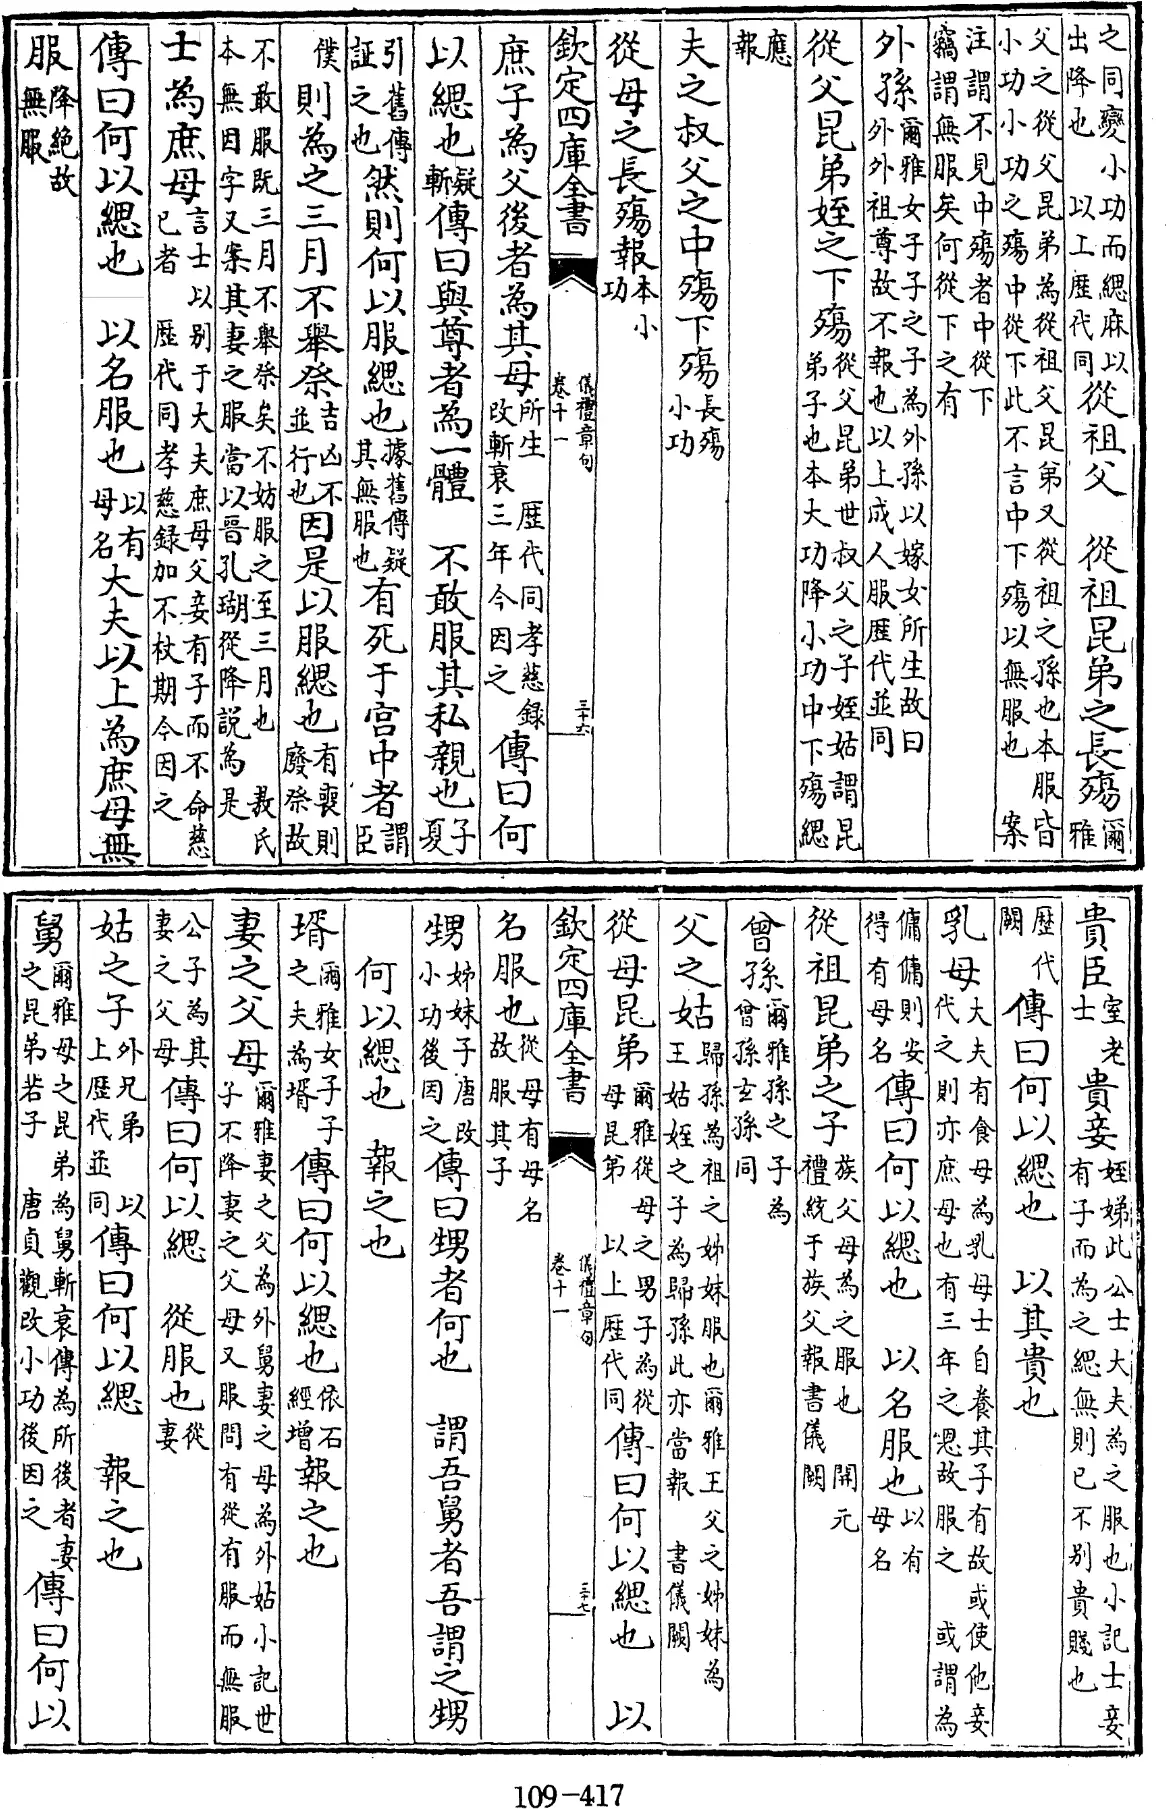 之同變小功而緦麻以出降也 以上歷代同從祖父 從祖昆弟之長殤爾雅
父之從父昆弟為從祖父昆弟又從祖之孫也本服皆小功小功之殤中從下此不言中下殤以無服也 案
注謂不見中殤者中從下竊謂無服矣何從下之有
外孫爾雅女子子之子為外孫以嫁女所生故曰外外祖尊故不報也以上成人服歷代並同
從父昆弟姪之下殤從父昆弟世叔父之子姪姑謂昆弟子也本大功降小功中下殤緦
應報
夫之叔父之中殤下殤長殤小功
從母之長殤報本小功
欽定四庫全書 儀禮章句 卷十一 三十六
庶子為父後者為其母所生 歷代同孝慈録改斬衰三年今因之傳曰何
以緦也疑斬傳曰與尊者為一體 不敢服其私親也子夏
引舊傳証之也然則何以服緦也據舊傳疑其無服也有死于宫中者謂臣
僕則為之三月不舉祭吉凶不並行也因是以服緦也有喪則廢祭故
不敢服既三月不舉祭矣不妨服之至三月也 敖氏本無因字又案其妻之服當以晉孔瑚從降說為是
士為庶母言士以别于大夫庶母父妾有子而不命慈己者 歷代同孝慈録加不杖期今因之
傳曰何以緦也 以名服也以有母名大夫以上為庶母無
服降絕故無服
貴臣室老士貴妾姪娣此公士大夫為之服也小記士妾有子而為之緦無則已不别貴賤也
歷代闕傳曰何以緦也 以其貴也
乳母大夫有食母為乳母士自養其子有故或使他妾代之則亦庶母也有三年之恩故服之 或謂為
傭傭則安得有母名傳曰何以緦也 以名服也以有母名
從祖昆弟之子族父母為之服也 開元禮統于族父報書儀闕
曾孫爾雅孫之子為曾孫玄孫同
父之姑歸孫為祖之姊妹服也爾雅王父之姊妹為王姑姪之子為歸孫此亦當報 書儀闕
從母昆弟爾雅從母之男子為從母昆弟 以上歷代同傳曰何以緦也 以
欽定四庫全書 儀禮章句 卷十一 三十七
名服也從母有母名故服其子
甥姊妹子唐改小功後因之傳曰甥者何也 謂吾舅者吾謂之甥
何以緦也 報之也
壻爾雅女子子之夫為壻傳曰何以緦也依石經增報之也
妻之父母爾雅妻之父為外舅妻之母為外姑小記世子不降妻之父母又服問有從有服而無服
公子為其妻之父母傳曰何以緦 從服也從妻
姑之子外兄弟 以上歷代並同傳曰何以緦 報之也
舅爾雅母之昆弟為舅斬衰傳為所後者妻之昆弟若子 唐貞觀改小功後因之傳曰何以
109-417